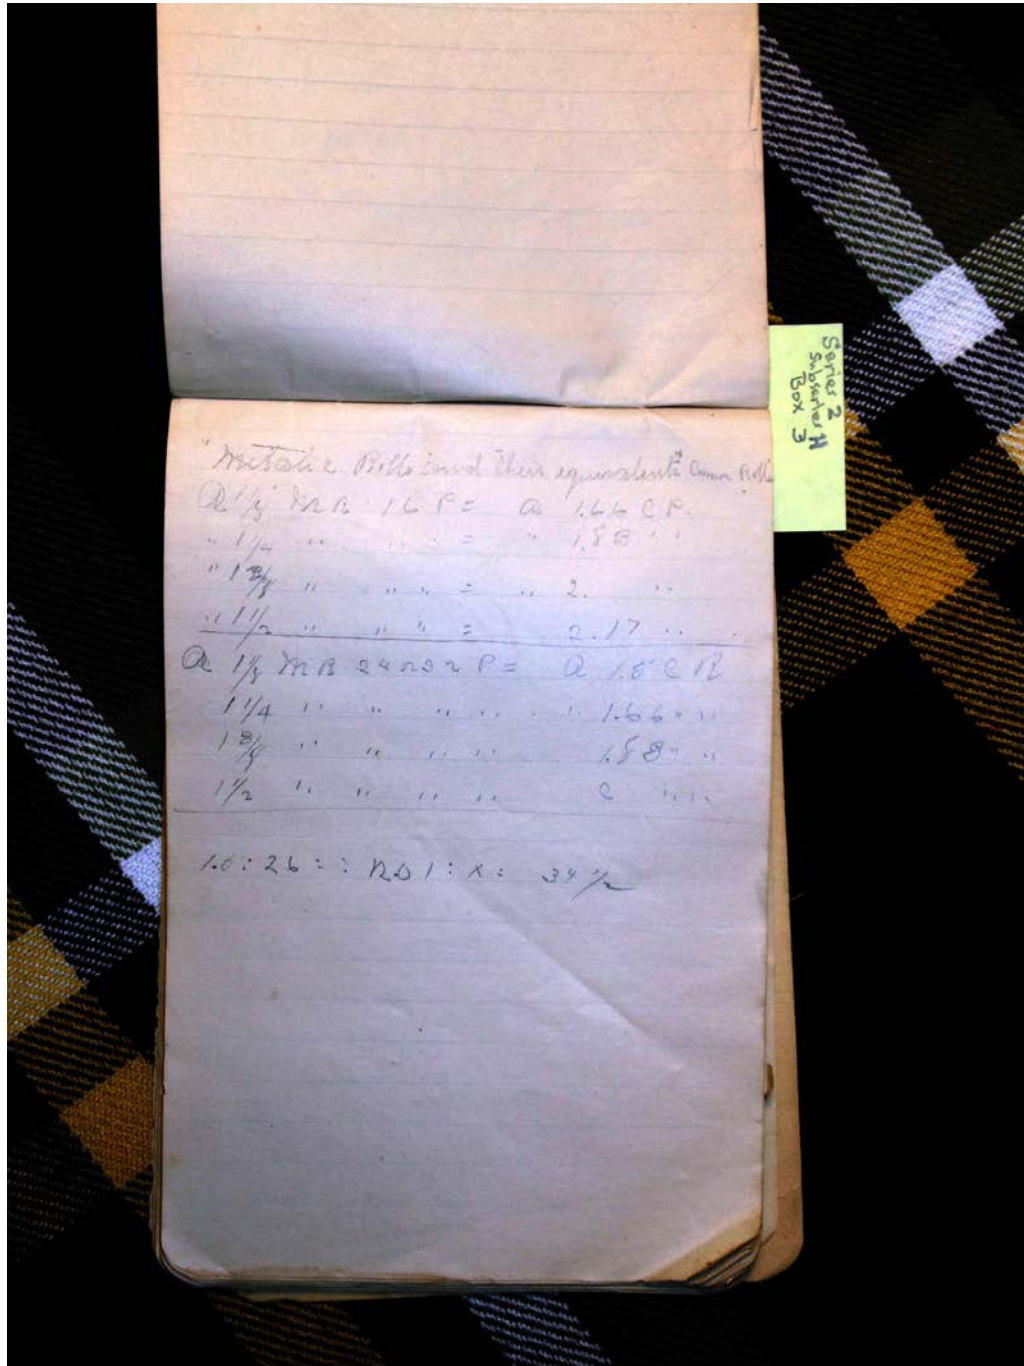 Series 2
Subseries H
Box 3
"Metalic Rolls and their equivalents Common Rolls
A 1 1/8 MR 16 P = a 1.66 C P.
" 1 1/4 " " " = " 1.83 " "
" 1 3/8 " " " = " 2. " "
" 1 1/2 " " " = 2.17 " "
A 1 1/8 MR 24 P = A 1.5 C R
1 1/4 " " " " " 1.66 " "
1 3/8 " " " " 1.83 " "
1 1/2 " " " " 2 " "
1.5 : 26 : : : X : 34 1/2